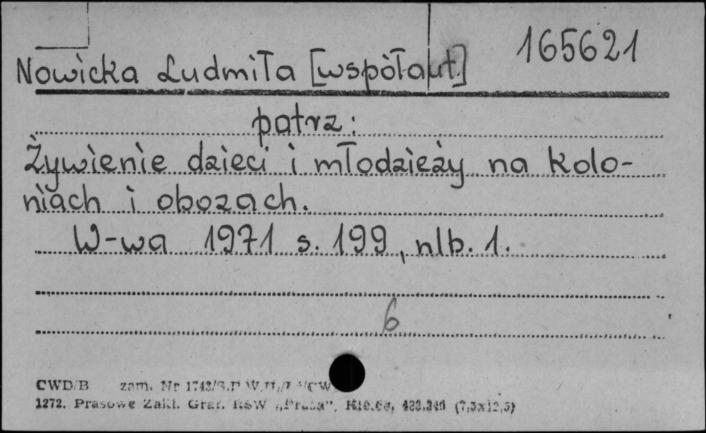 165621
Nowicka Ludmiła [współaut.]
patrz:
Żywienie dzieci i młodzieży na kolo-
niach i obozach.
W-wa 1971 s. 199, nlb. 1.
6
CWD/B zam. Nr 1742/
1272. Prasowe Zakł. Graf. RSW „Prasa", (7,5x12,5)